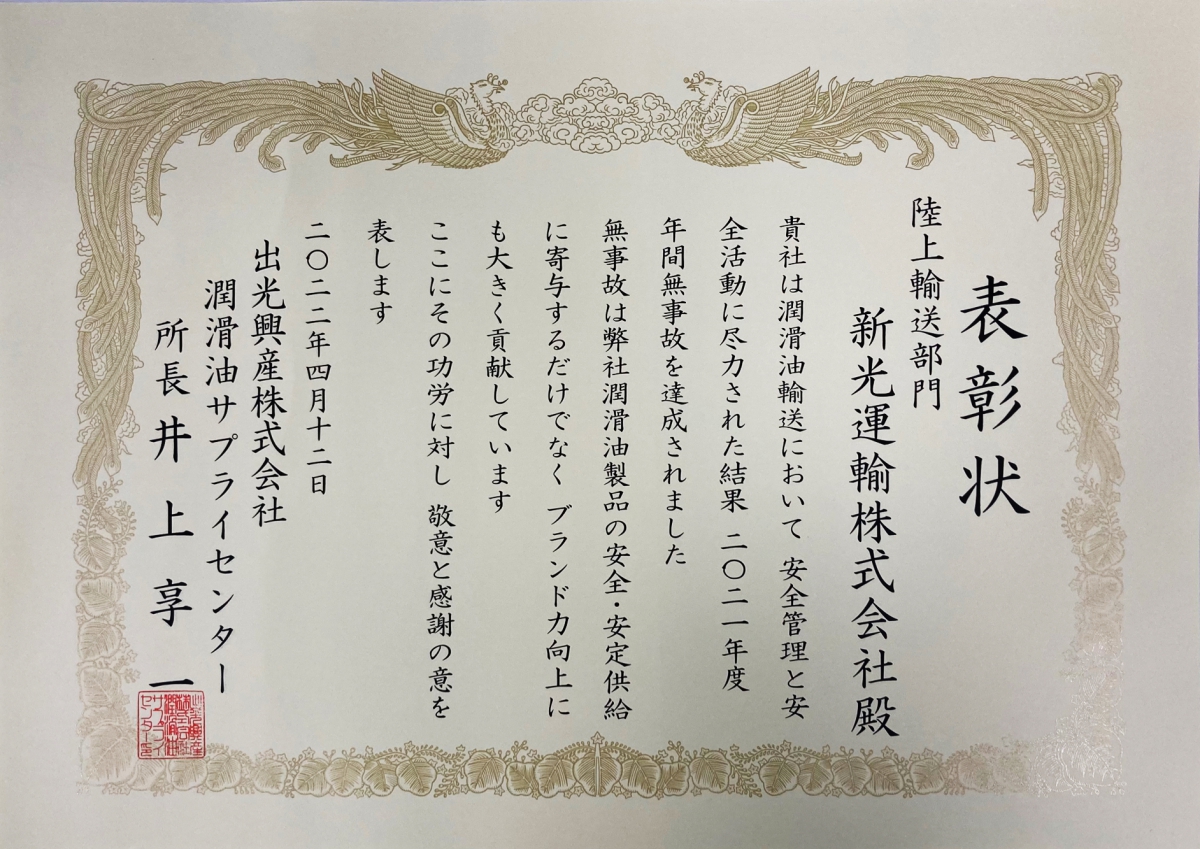 表彰状
陸上輸送部門
新光運輸株式会社殿
貴社は潤滑油輸送において 安全管理と安
全活動に尽力された結果 二〇二一年度
年間無事故を達成されました
無事故は弊社潤滑油製品の安全・安定供給
に寄与するだけでなく ブランド力向上に
も大きく貢献しています
ここにその功労に対し 敬意と感謝の意を
表します
二〇二二年四月十二日
出光興産株式会社
潤滑油サプライセンター
所長井上享一
出光興産
株式会社
潤滑油
サプライ
センター